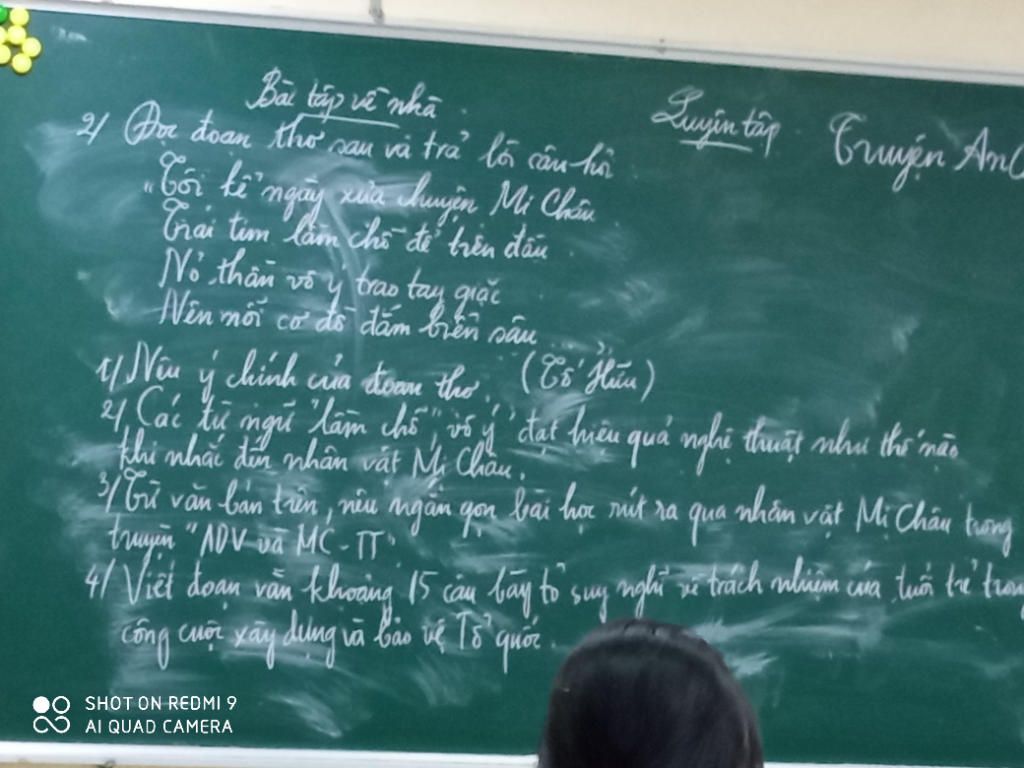 Bài tập về nhà
Luyện tập
Truyện An
2/ Đọc đoạn thơ sau và trả lời câu hỏi
"Tôi kể ngày xưa chuyện Mị Châu
Trái tim lầm chỗ để trên đầu
Nỏ thần vô ý trao tay giặc
Nên nỗi cơ đồ đắm biển sâu
(Tố Hữu)
1/ Nêu ý chính của đoạn thơ.
2/ Các từ ngữ "lầm chỗ" "vô ý" đạt hiệu quả nghệ thuật như thế nào
khi nhắc đến nhân vật Mị Châu.
3/ Từ văn bản trên, nêu ngắn gọn bài học rút ra qua nhân vật Mị Châu trong
truyện "ADV và MC - TT"
4/ Viết đoạn văn khoảng 15 câu bày tỏ suy nghĩ về trách nhiệm của tuổi trẻ trong
công cuộc xây dựng và bảo vệ Tổ quốc.
SHOT ON REDMI 9
AI QUAD CAMERA